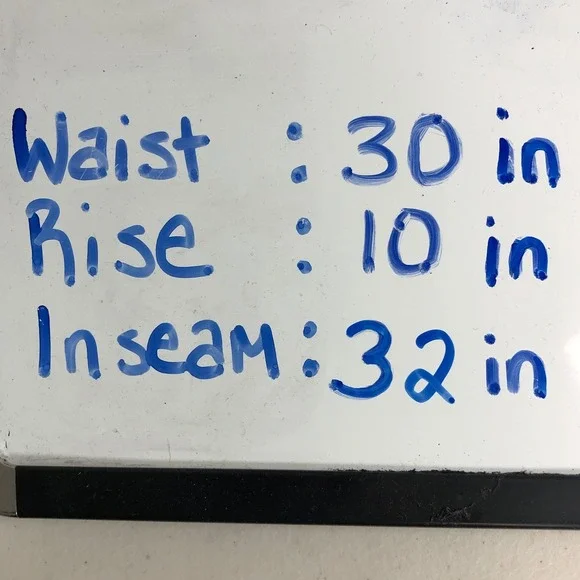 Waist : 30 in
Rise : 10 in
Inseam : 32 in